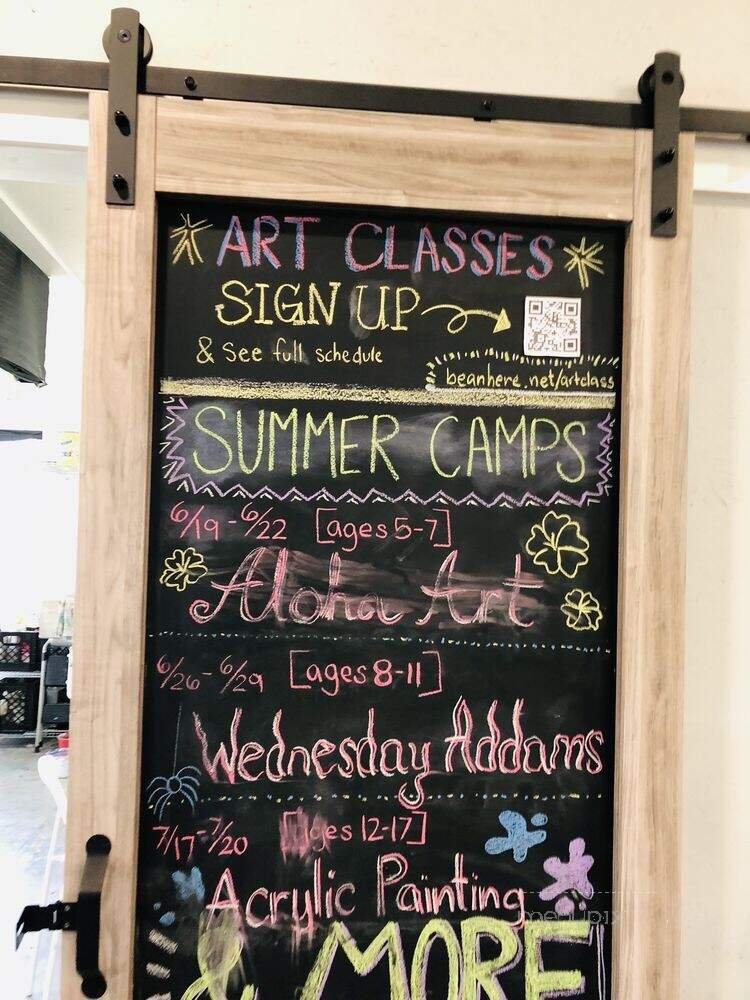 ART CLASSES
SIGN UP
& See full schedule
beanhere.net/artclass
SUMMER CAMPS
6/19 - 6/22 [ages 5-7]
Aloha Art
6/26 - 6/29 [ages 8-11]
Wednesday Addams
7/17 - 7/20 [ages 12-17]
Acrylic Painting
menupix
& MORE